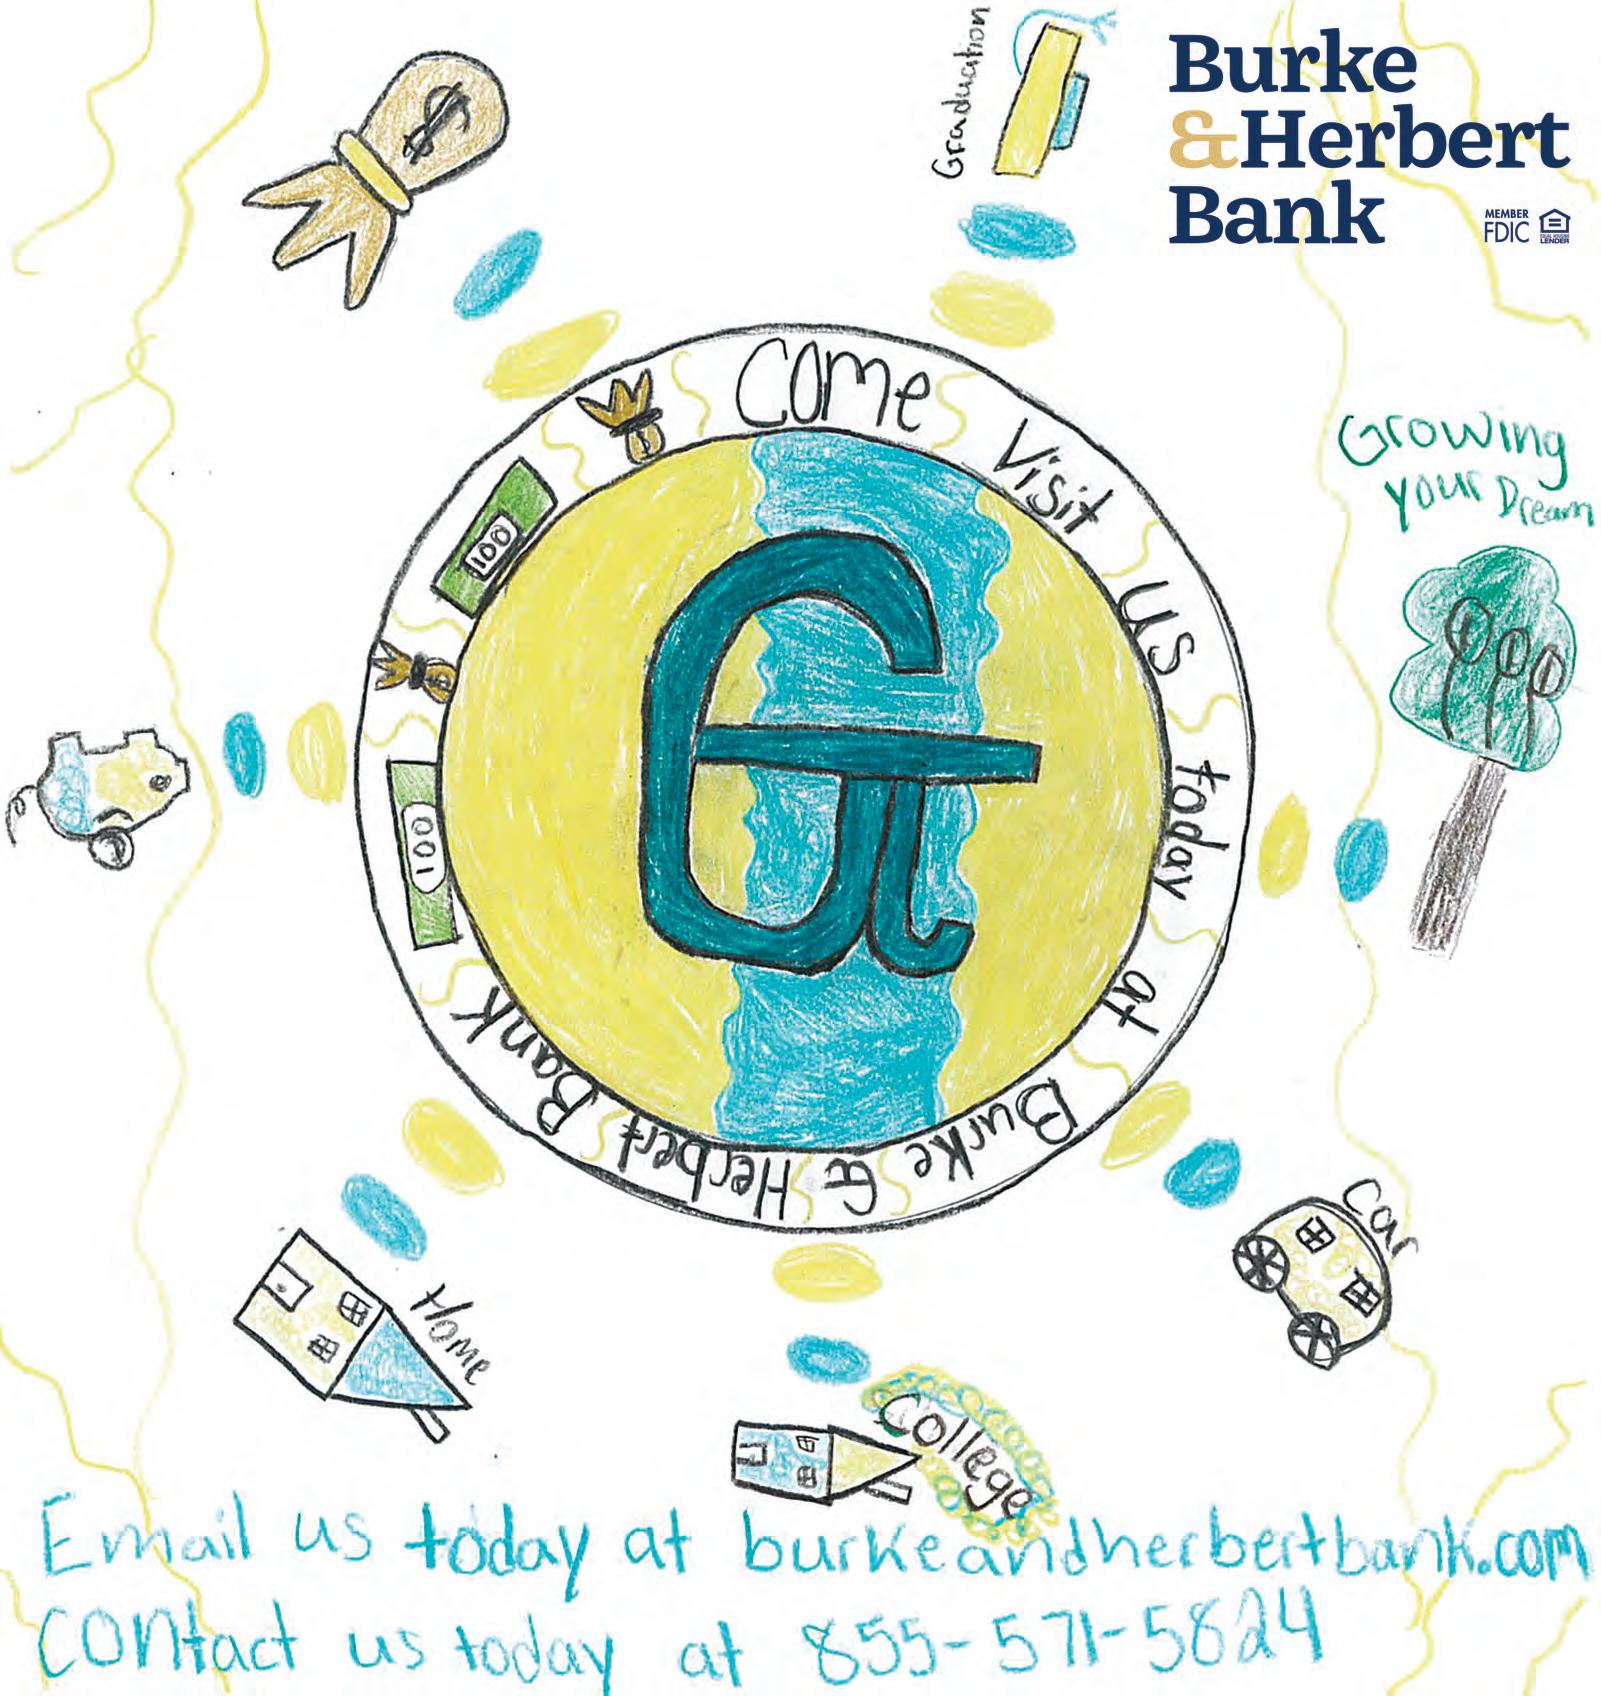 Graduation
Burke
&Herbert
Bank
MEMBER
FDIC
EQUAL HOUSING
LENDER
$
Come Visit us today at Burke & Herbert Bank
100
100
Growing
your Dream
Car
Home
College
Email us today at burkeandherbertbank.com
Contact us today at 855-571-5824